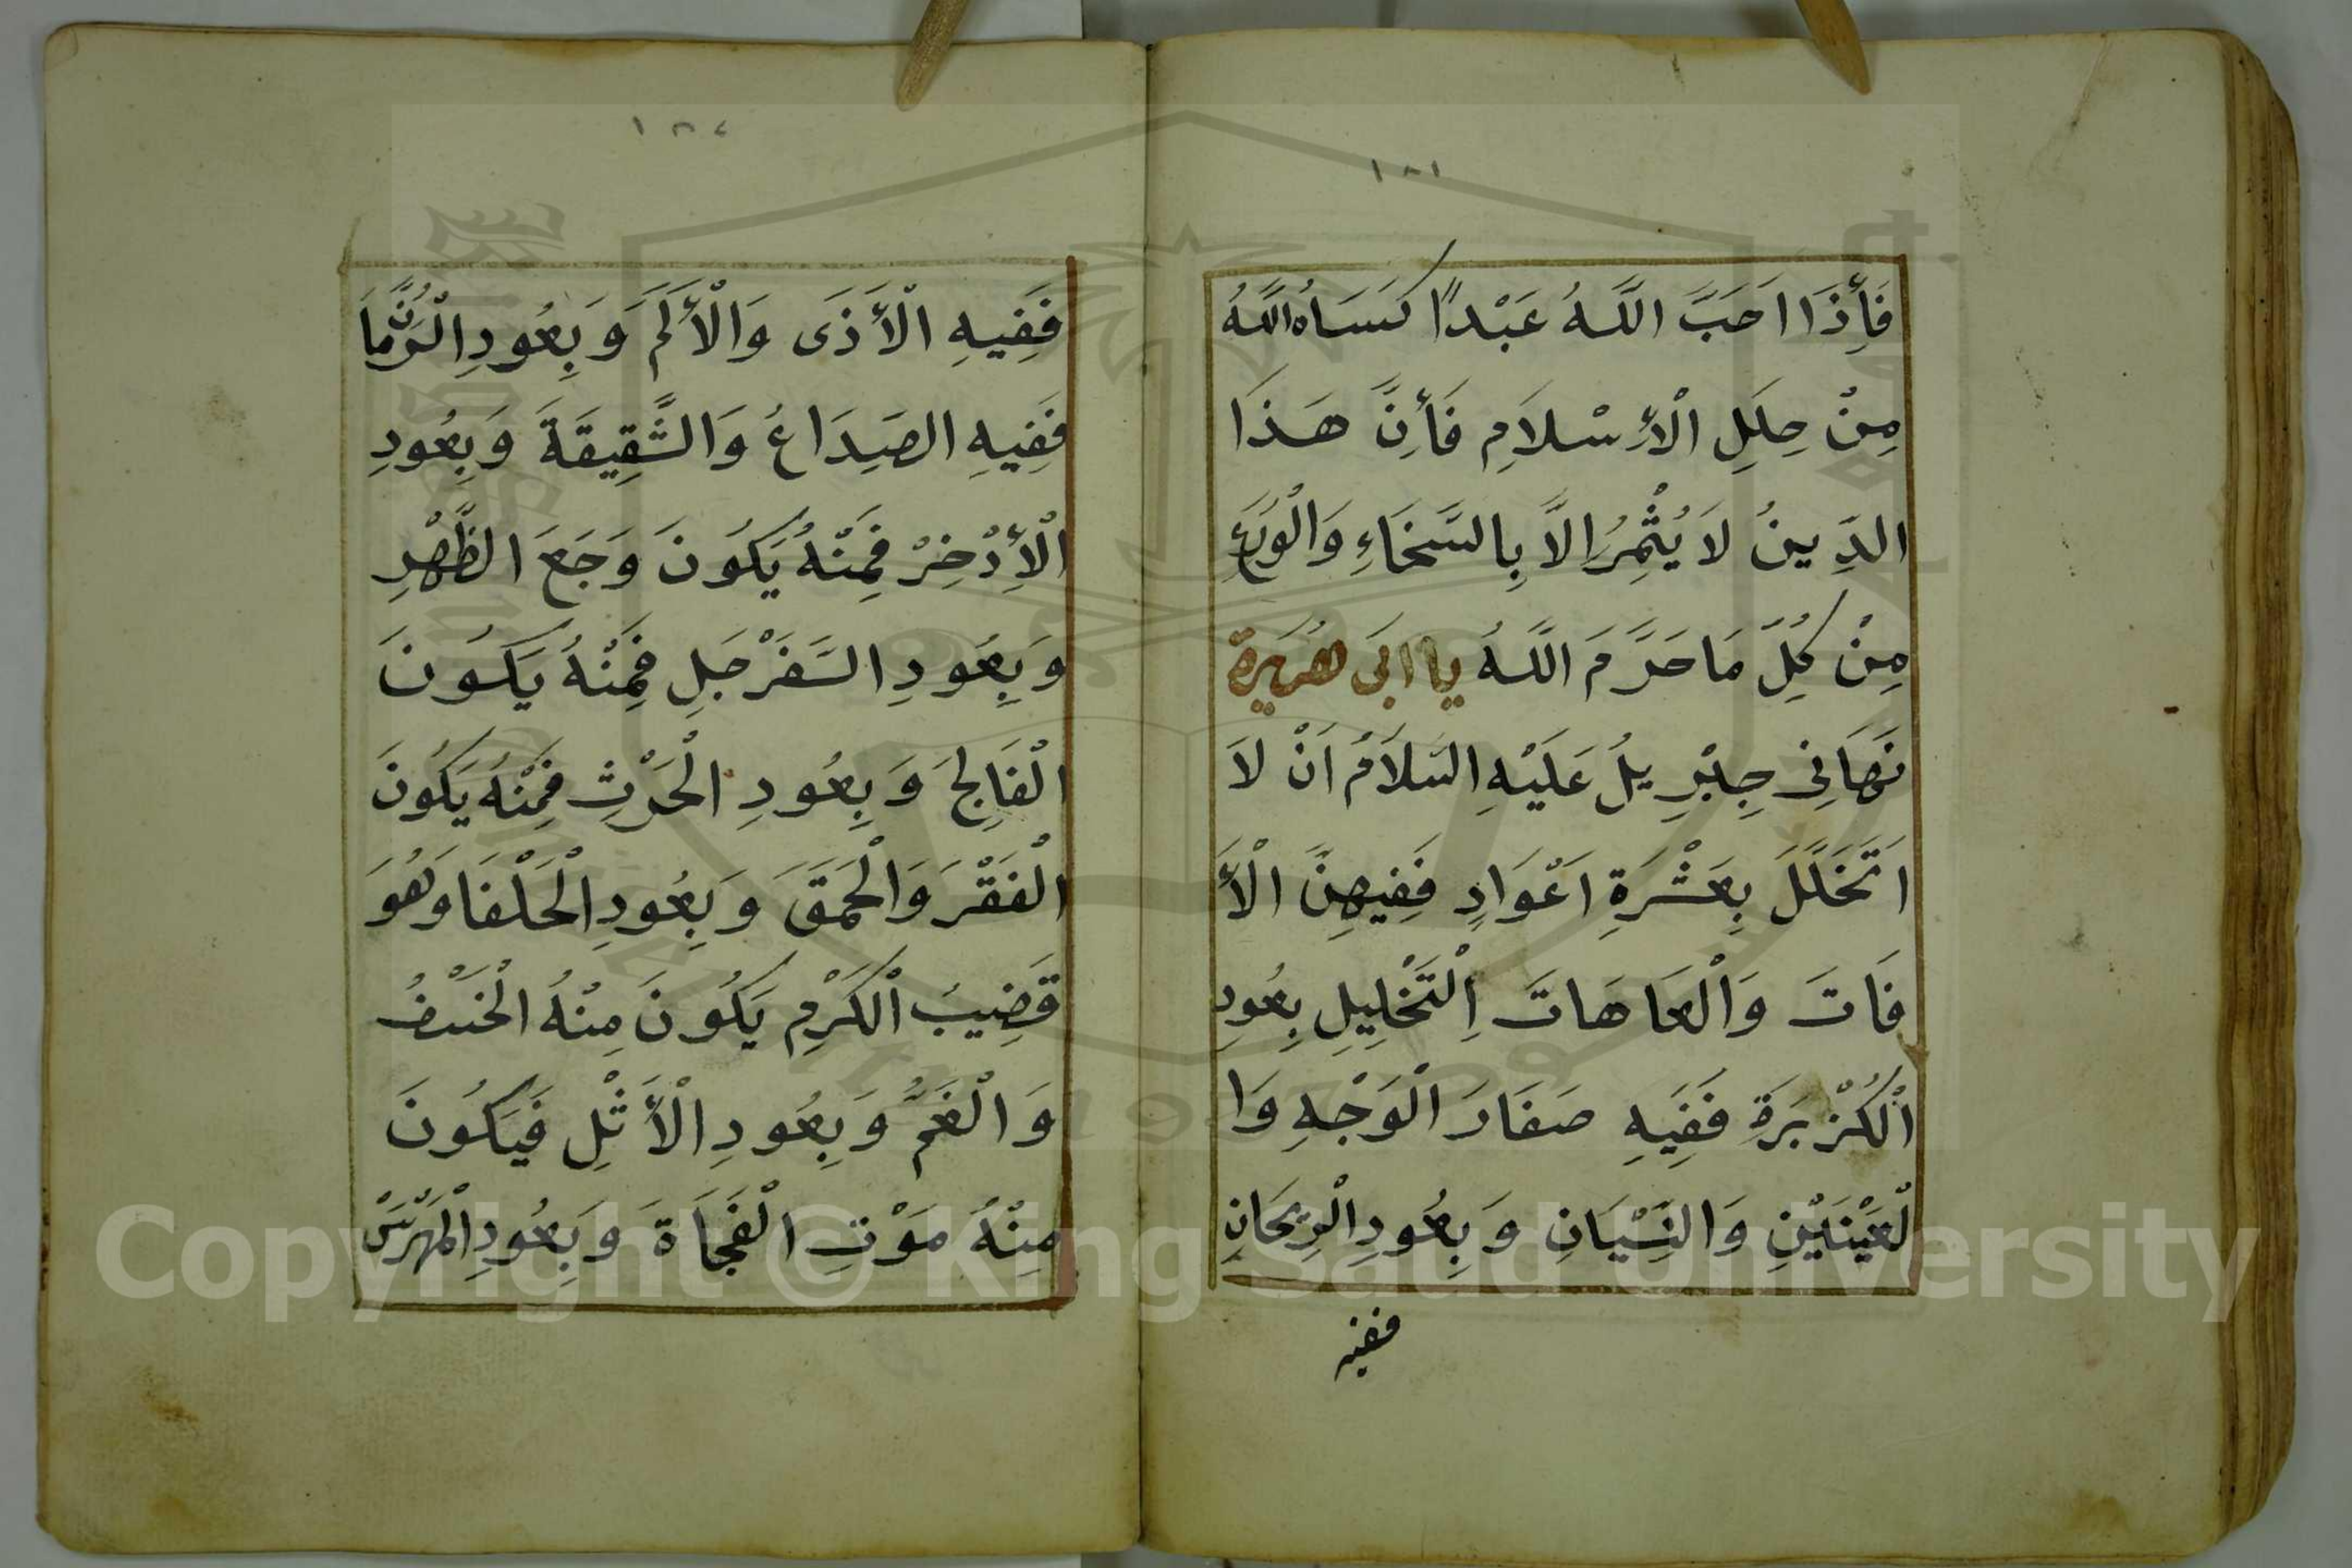 ١٨١
فَأِذَا اَحَبَّ اللَّهُ عَبْدًا كَسَاهُ اللَّهُ
مِنْ حِلَلِ الْأِسْلَامِ فَأِنَّ هَذَا
الدِّينُ لَا يُثْمِرُ اِلَّا بِالسَّخَاءِ وَالْوَرَعِ
مِنْ كُلِّ مَا حَرَّمَ اللَّهُ يا ابَى هُرَيرة
نَهَانِى جِبْرِيلُ عَلَيْهِ السَّلَامُ اَنْ لَا
اَتَخَلَّلَ بِعَشْرَةِ اَعْوَادٍ فَفِيهِنَّ الْأَ
فَاتَ وَالْعَاهَاتَ اِلْتَخْلِيلِ بِعُودِ
اْلكُزْبَرَةِ فَفِيَهِ صَفَارَ الْوَجْهِ وَا
لْعَيْنَيْنِ وَالنِّسْيَانِ وَبِعُودِ الْرِيحَانِ
ففيه
١٨٢
فَفِيهِ الْأَذَى وَالْأَلَمَ وَبِعُودِ الْرُمَّانِ
فَفِيهِ الصُدَاعُ وَالشَّقِيقَةَ وَبِعُودِ
الْأِذْخِرْ فَمِنْهُ يَكُونَ وَجَعَ الظَّهْرِ
وَبِعُودِ السَّفَرْجَلِ فَمِنْهُ يَكُونَ
الْفَالِجَ وَبِعُودِ الْحَرْثِ فَمِنْهُ يَكُونَ
الْفَقْرَ وَالْحَمَقَ وَبِعُودِ الْحَلْفَا وَهُوَ
قَضِيبُ الْكَرْمِ يَكُونَ مِنْهُ الْخَسْفُ
وَالْغَمَّ وَبِعُودِ الْأَثْلِ فَيَكُونَ
مِنْهُ مَوْتِ الْفَجَاَةَ وَبِعُودِ
Copyright © King Saud University